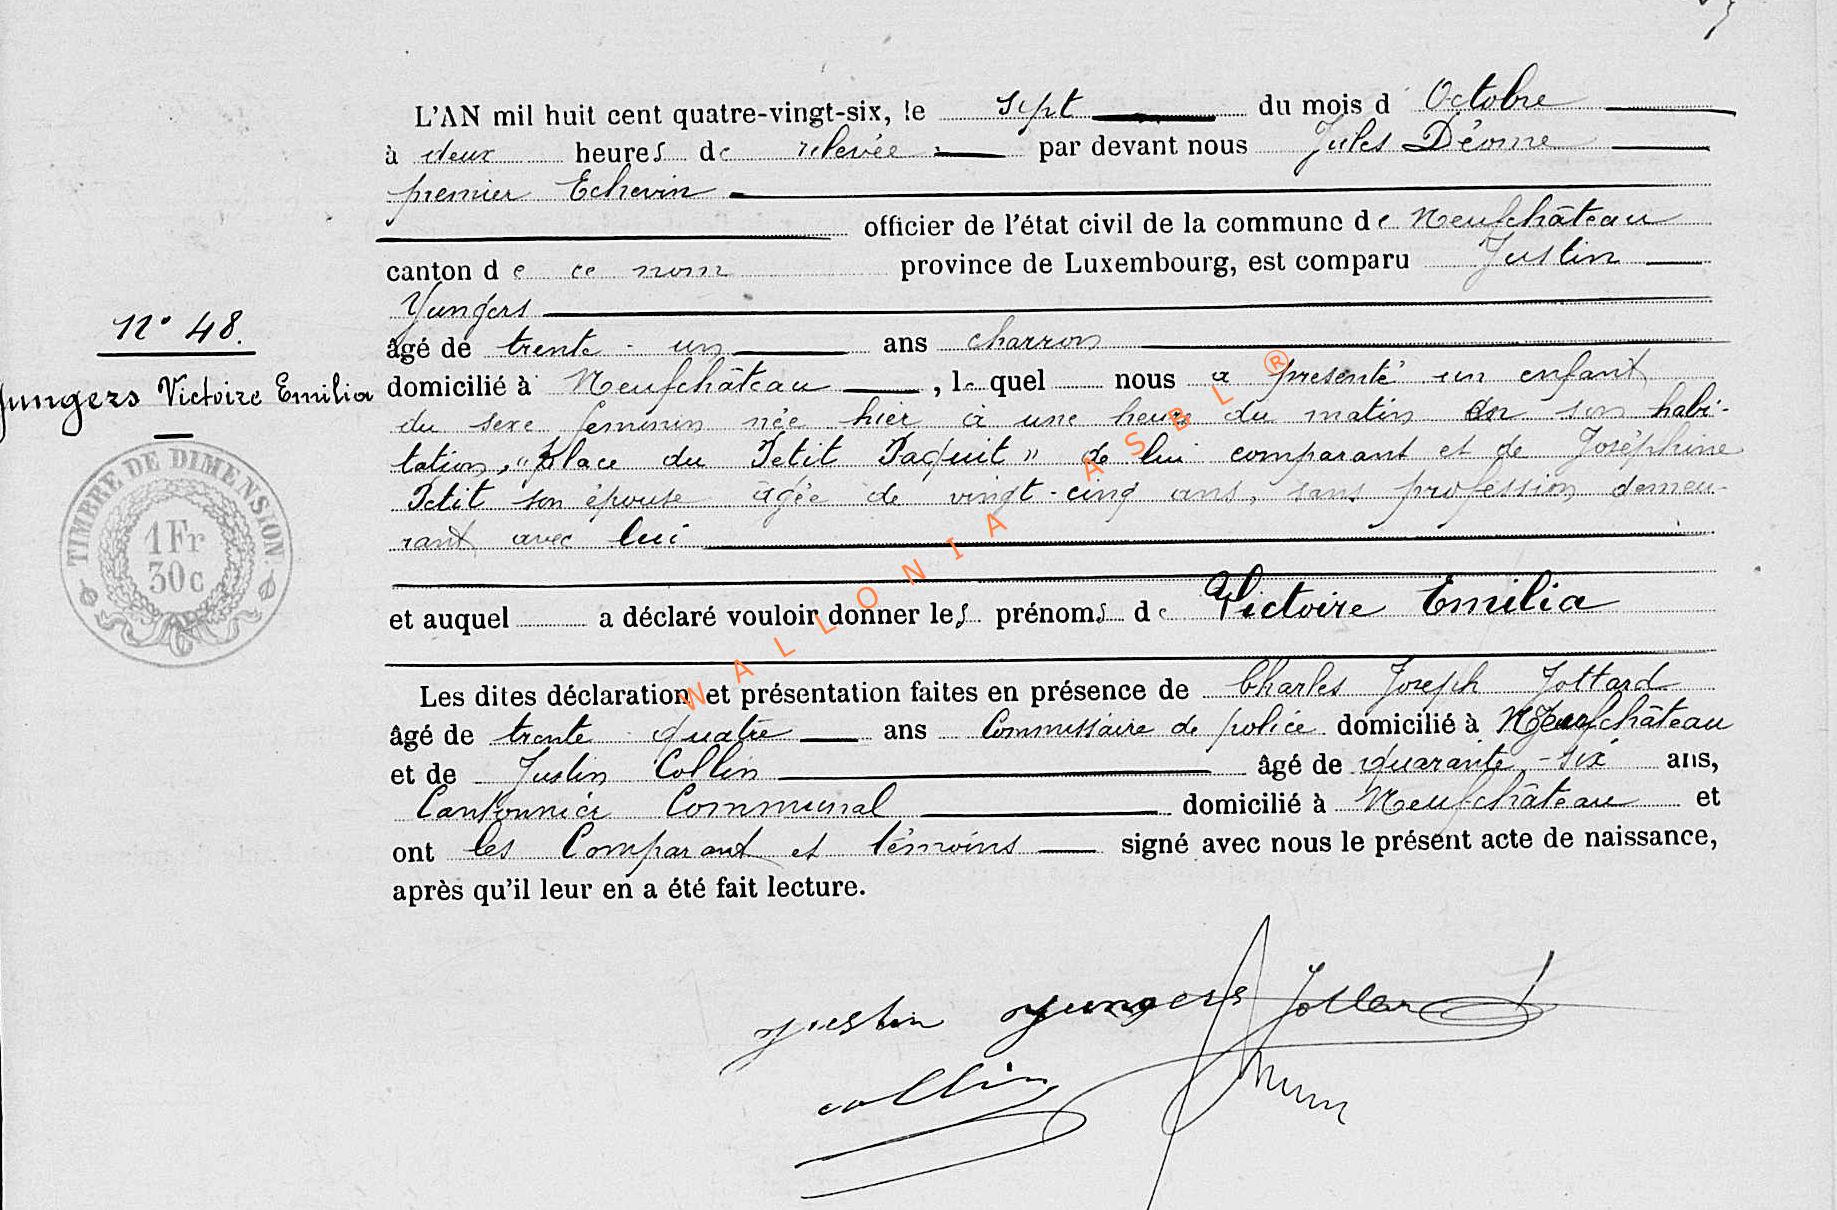 L'AN mil huit cent quatre-vingt-six, le sept du mois d' Octobre
à deux heures de relevée par devant nous Jules Déome
premier Echevin
officier de l'état civil de la commune de Neufchâteau
canton de ce nom province de Luxembourg, est comparu Justin
Jungers
N° 48.
âgé de trente-un ans charron
Jungers Victoire Emilia
domicilié à Neufchâteau, lequel nous a présenté un enfant
du sexe feminin née hier à une heure du matin en son habi-
tation, "Place du Petit Paquit" de lui comparant et de Joséphine
Petit son épouse âgée de vingt-cinq ans, sans profession demeu-
rant avec lui
TIMBRE DE DIMENSION
1 Fr
30c
et auquel a déclaré vouloir donner les prénoms de Victoire Emilia
Les dites déclaration et présentation faites en présence de Charles Joseph Jottard
âgé de trente quatre ans Commissaire de police domicilié à Neufchâteau
et de Justin Collin âgé de quarante-six ans,
Cantonnier Communal domicilié à Neufchâteau et
ont les Comparant et témoins signé avec nous le présent acte de naissance,
après qu'il leur en a été fait lecture.
Justin Jungers Jottard
Collin
WALLONIA ASBL ®